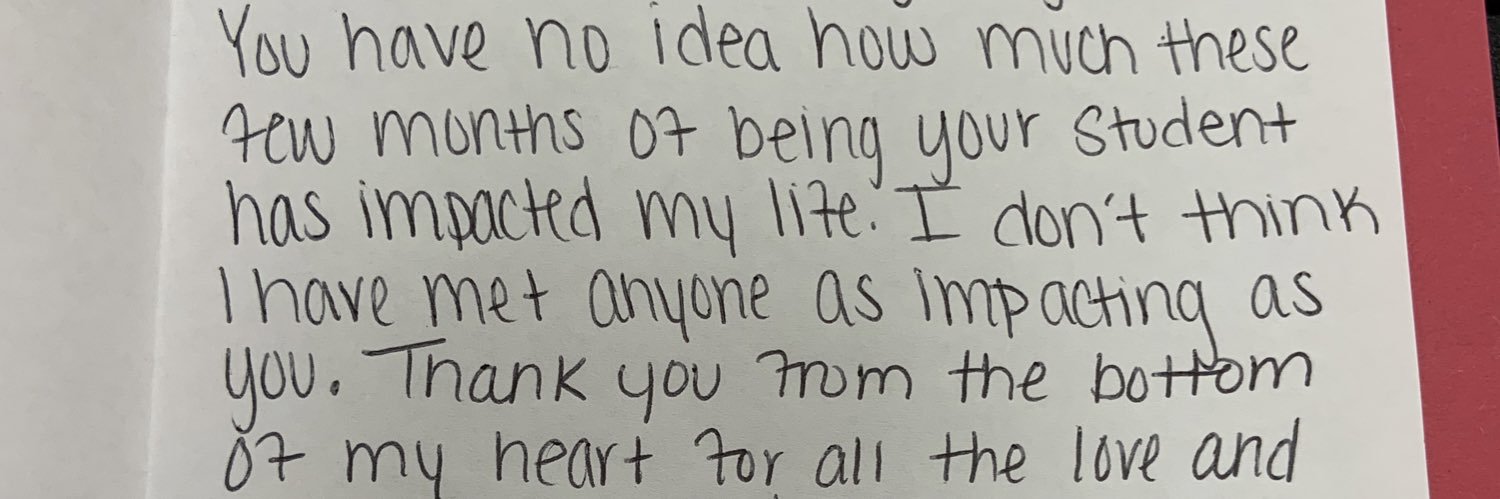 You have no idea how much these
few months of being your student
has impacted my life. I don't think
I have met anyone as impacting as
you. Thank you from the bottom
of my heart for all the love and